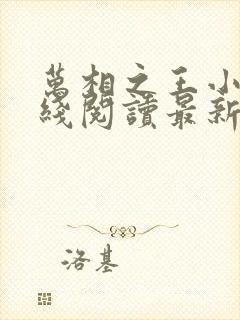 萬相之王小
綫閱讀最新
洛基